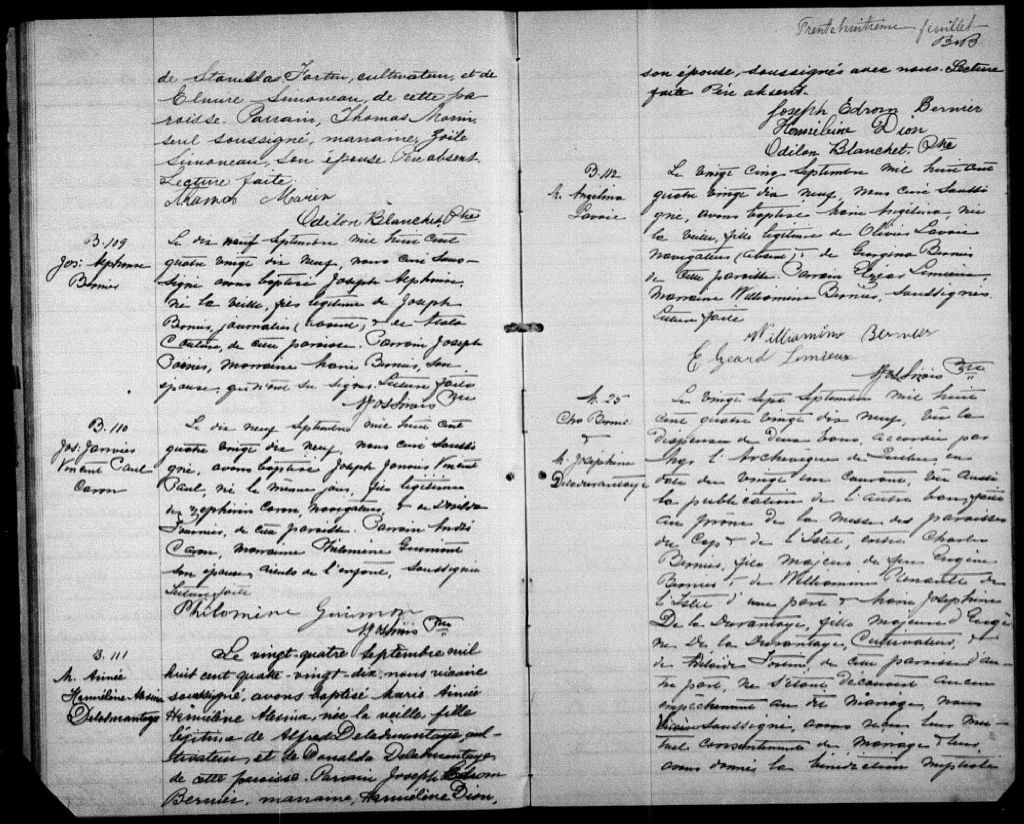 de Stanislas Fortin, cultivateur, et de
Elmire Simoneau, de cette pa
roisse. Parrain, Thomas Morin
seul soussigné, marraine, Zoïle
Simoneau, son épouse Père absent.
Lecture faite.
Thamas Marin
Odilon Blanchet, Ptre
B. 109
Jos: Alphonse
Bernier
Le dix neuf Septembre mil huit cent
quatre vingt dix neuf, nous curé sous-
signé avons baptisé Joseph Alphonse,
né la veille, fils légitime de Joseph
Bernier, journalier, (absent) & de
Couture, de cette paroisse. Parrain Joseph
marraine Marie Bernier, son
épouse, qui n'ont su signer. Lecture faite
Ptre
B. 110
Jos: Janvier
Vincent Paul
Caron
Le dix neuf Septembre mil huit cent
quatre vingt dix neuf nous curé soussi
gné, avons baptisé Joseph Janvier Vincent
Paul, né le même jour, fils légitime
de Zéphirin Caron, navigateur, & de
Fournier, de cette paroisse. Parrain André
Caron, marraine Philomine Guimont
son épouse, aïeuls de l'enfant, soussignée
Lecture faite
Philomine Guimon
Ptre
B. 111
M. Aimée
Herméline Alesina
Deladurantaye
Le vingt-quatre septembre mil
huit cent quatre-vingt-dix, nous vicaire
soussigné, avons baptisé Marie Aimée
Herméline Alesina, née la veille, fille
légitime de Alfred Deladurantaye, cul-
tivateur, et de Donalda Deladurantaye
de cette paroisse. Parrain Joseph Edrom
Bernier, marraine, Herméline Dion,
Trente huitième feuillet
B.B
son épouse, soussignés avec nous. Lecture
faite Père absent.
Joseph Edrom Bernier
Herméline Dion
Odilon Blanchet, Ptre
B. 112
M. Angelina
Lavoie
Le vingt cinq Septembre mil huit cent
quatre vingt dix neuf, nous curé soussi
gné, avons baptisé Marie Angelina, née
la veille, fille légitime de Olivier Lavoie
navigateur (absent), & de Georgina Bernier
de cette paroisse. Parrain Elzéar Lemieux
Marraine Williamine Bernier, soussignés
Lecture faite
Williamine Bernier
Elzeard Lemieux
Ptre
M. 25
Chs Bernier
&
M. Josephine
Deladurantaye
Le vingt sept Septembre mil huit
cent quatre vingt dix neuf, vu la
dispense de deux bans, accordée par
Mgr l'Archevêque de Québec, en
date du vingt un courant, vu aussi
la publication de l'autre ban, faite
au prône de la messe des paroisses
du Cap & de l'Islet, entre Charles
Bernier, fils majeur de feu Eugène
Bernier & de Williamine de
l'Islet d'une part & Marie Josephine
De la Durantaye, fille majeure d'Eugè
ne De la Durantaye, Cultivateur, &
de Adelaïde Fortin, de cette paroisse d'au
tre part, ne s'étant découvert aucun
empêchement au dit mariage, nous
Vicaire soussigné, avons reçu leur mu-
tuel consentement de mariage & leur
avons donné la bénédiction nuptiale